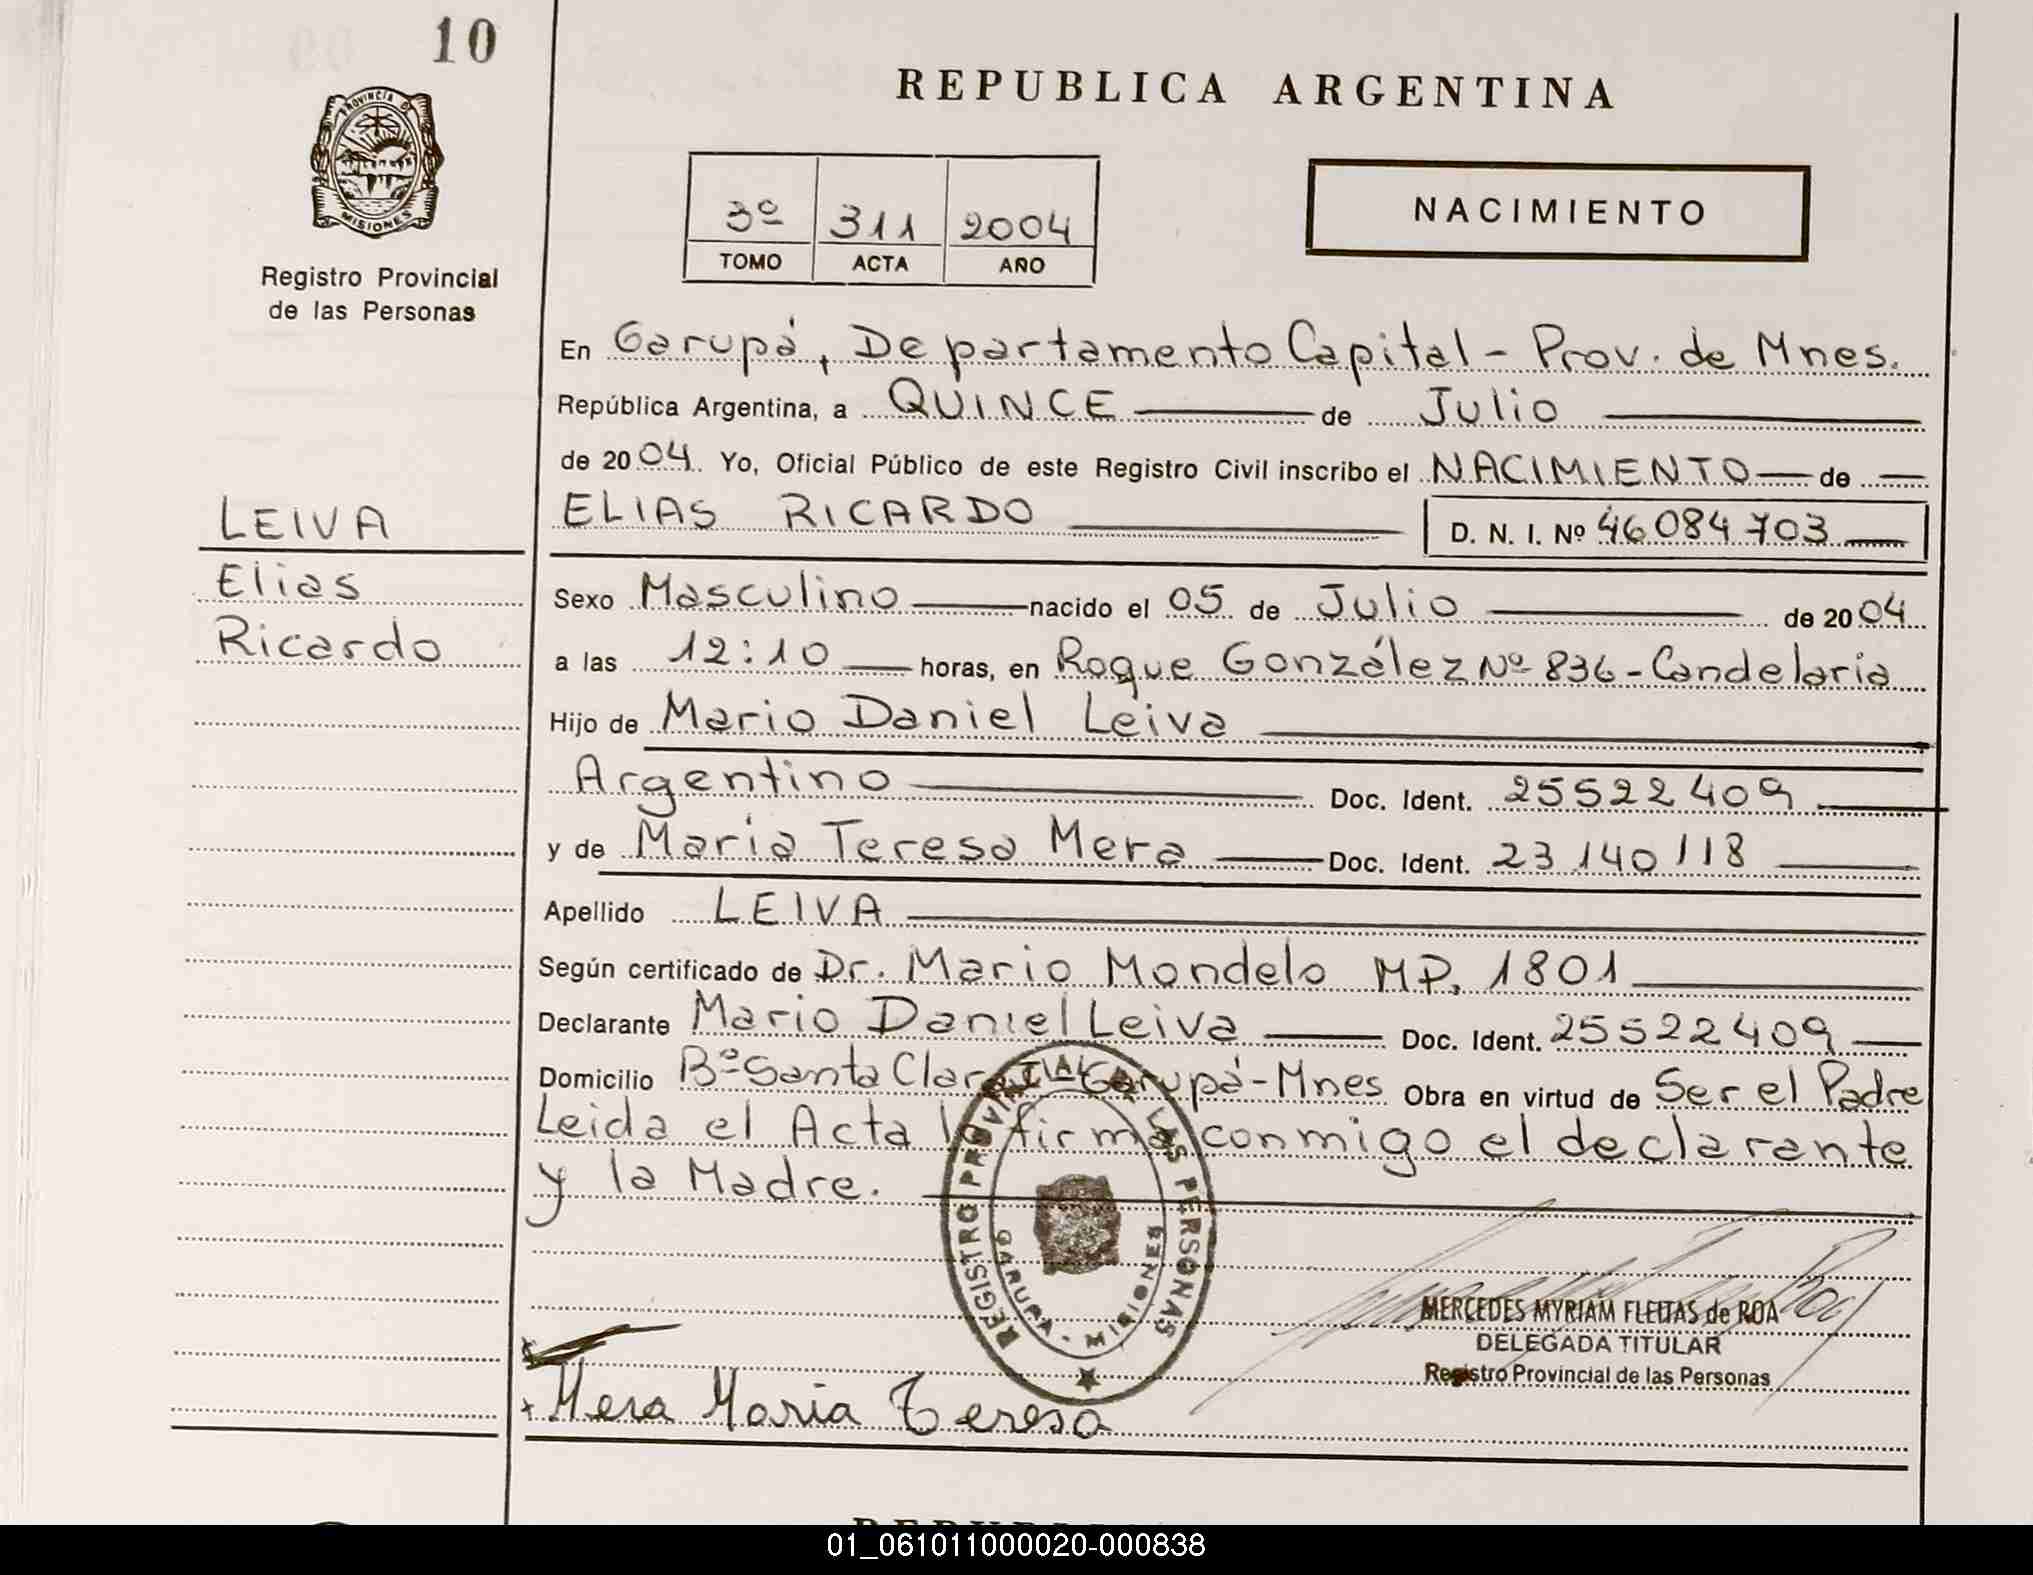 10
REPUBLICA ARGENTINA
PROVINCIA DE
MISIONES
Registro Provincial
de las Personas
3º 311 2004
TOMO ACTA AÑO
NACIMIENTO
En Garupá, Departamento Capital - Prov. de Mnes.
República Argentina, a QUINCE de Julio
de 2004 Yo, Oficial Público de este Registro Civil inscribo el NACIMIENTO de
ELIAS RICARDO D. N. I. Nº 46084703
LEIVA
Elias
Ricardo
Sexo Masculino nacido el 05 de Julio de 2004
a las 12:10 horas, en Roque González Nº 836 - Candelaria
Hijo de Mario Daniel Leiva
Argentino Doc. Ident. 25522409
y de Maria Teresa Mera Doc. Ident. 23140118
Apellido LEIVA
Según certificado de Dr. Mario Mondelo MP. 1801
Declarante Mario Daniel Leiva Doc. Ident. 25522409
Domicilio Bº Santa Clara Garupá - Mnes Obra en virtud de Ser el Padre
Leida el Acta la firma conmigo el declarante
y la Madre.
REGISTRO PROVINCIAL DE LAS PERSONAS
GARUPA - MISIONES
MERCEDES MYRIAM FLEITAS de ROA
DELEGADA TITULAR
Registro Provincial de las Personas
Mera Maria Teresa
01_061011000020-000838